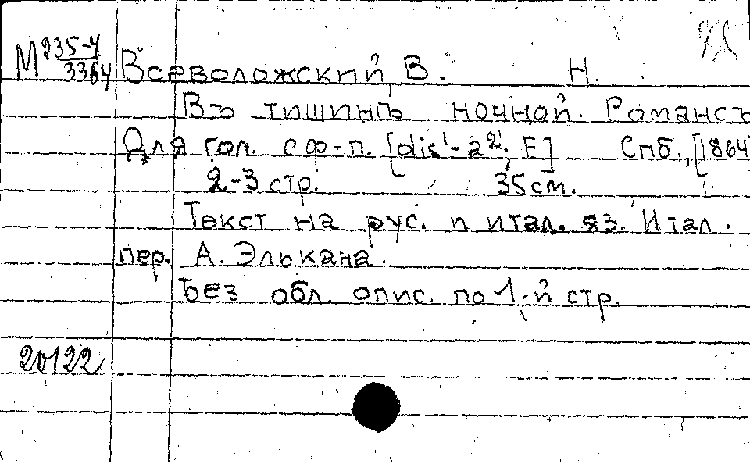 М 235-4/3364 Всеволожский, В. Н.
Въ тишинѣ ночной. Романсъ
Для гол. с ф-п. [dis¹-a²; E] Спб., [1864]
2-3 стр. 35 cm.
Текст на рус. и итал. яз. Итал.
пер. А. Элькана.
Без обл. опис. по 1-й стр.
20122